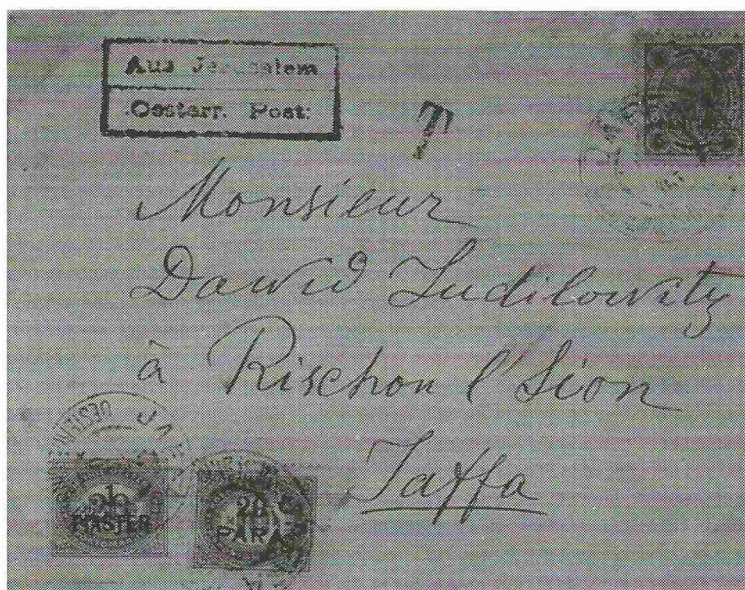 Aus Jerusalem
Oesterr. Post.
T
Monsieur
Dawid Judilowitz
à Rischon l'Sion
Jaffa
OESTERR
JAFFA
1
PIASTER
20
PARA